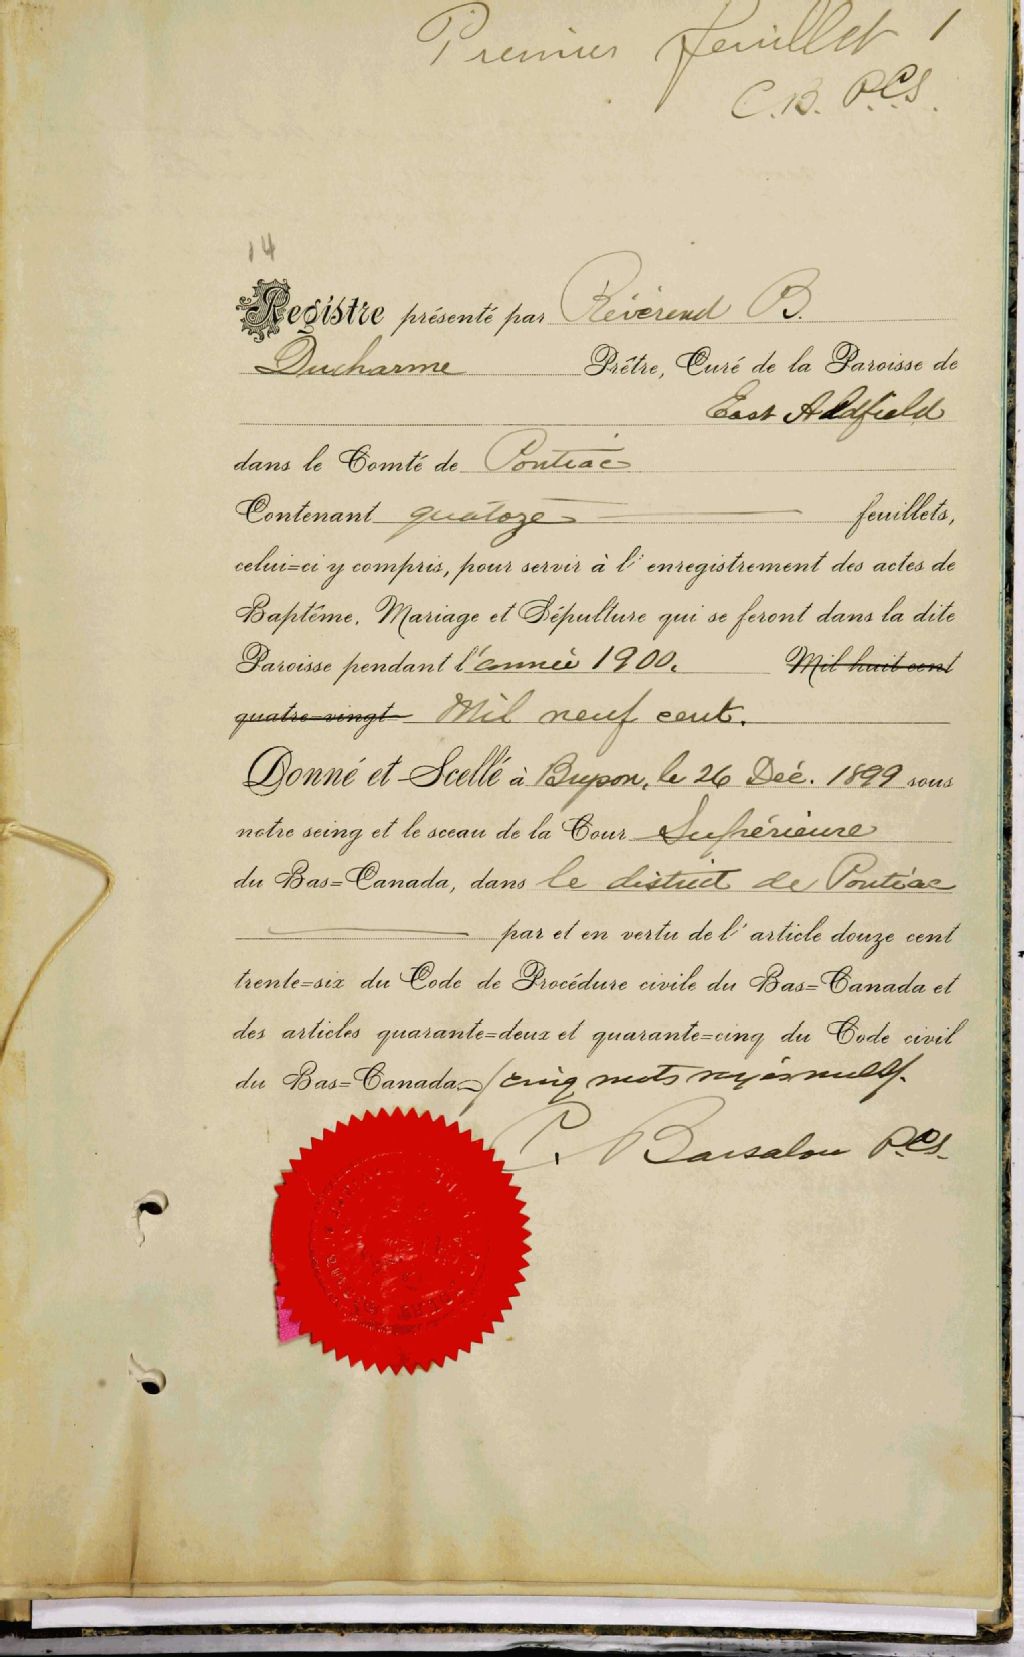 Premier feuillet 1
C.B. P.C.S.
14
Registre présenté par Révérend B.
Ducharme Prêtre, Curé de la Paroisse de
East Aldfield
dans le Comté de Pontiac
Contenant quatoze feuillets,
celui=ci y compris, pour servir à l'enregistrement des actes de
Baptême, Mariage et Sépulture qui se feront dans la dite
Paroisse pendant l'année 1900. Mil huit cent
quatre=vingt Mil neuf cent.
Donné et Scellé à Bryson, le 26 Déc. 1899 sous
notre seing et le sceau de la Cour Supérieure
du Bas=Canada, dans le district de Pontiac
par et en vertu de l'article douze cent
trente=six du Code de Procédure civile du Bas=Canada et
des articles quarante=deux et quarante=cinq du Code civil
du Bas=Canada. cinq mots rayés nuls.
C. Barsalou P.C.S.